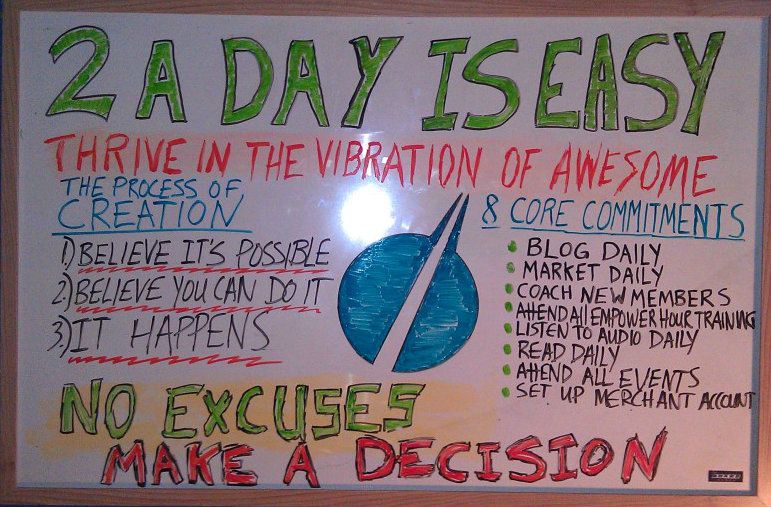 2 A DAY IS EASY
THRIVE IN THE VIBRATION OF AWESOME
THE PROCESS OF
CREATION
1.) BELIEVE IT'S POSSIBLE
2.) BELIEVE YOU CAN DO IT
3.) IT HAPPENS
8 CORE COMMITMENTS
BLOG DAILY
MARKET DAILY
COACH NEW MEMBERS
AttEND All EMPOWER HOUR TRAINING
LISTEN TO AUDIO DAILY
READ DAILY
AttEND ALL EVENTS
SET UP MERCHANT ACCOUNT
NO EXCUSES
MAKE A DECISION